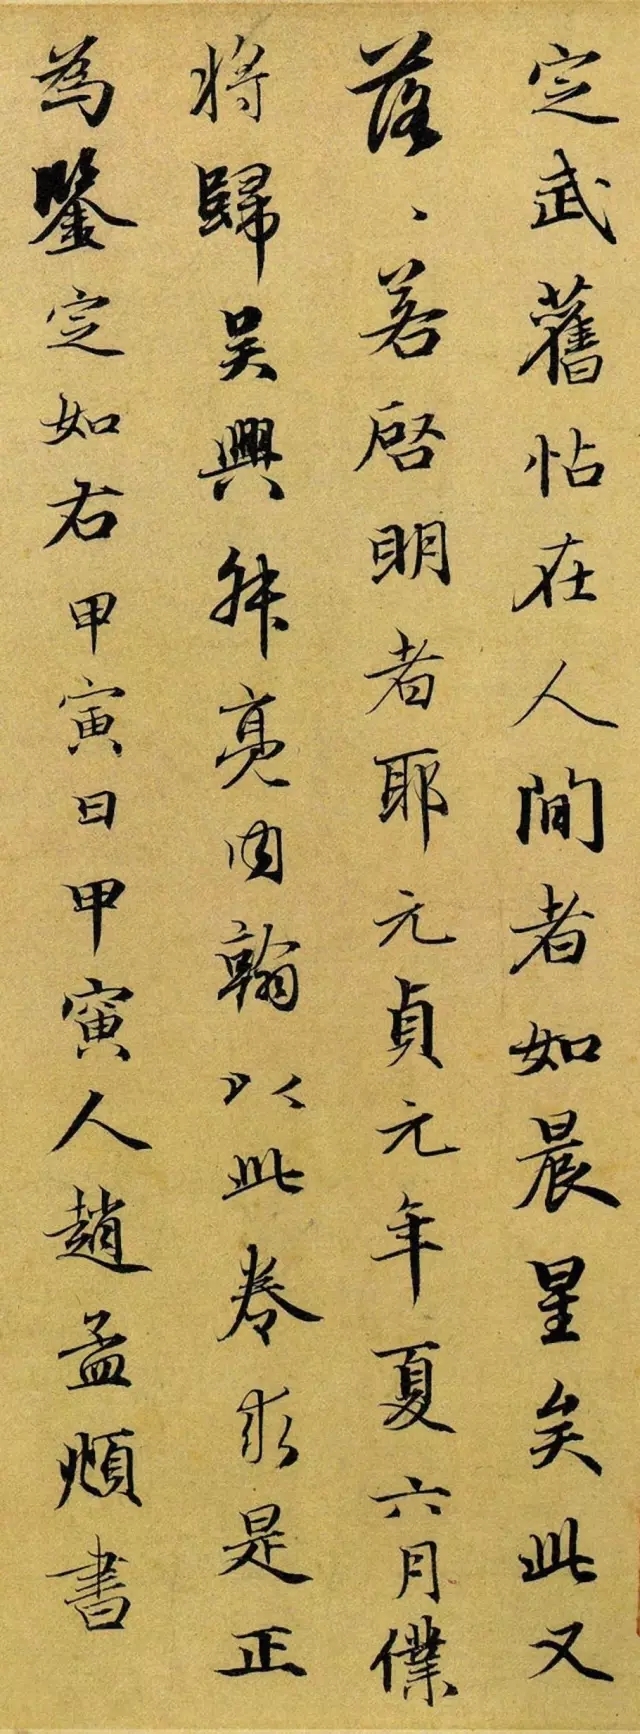 定武舊帖在人間者如晨星矣此又
落、若啓明者耶元貞元年夏六月僕
将歸吴興舛亮内翰以此卷求是正
為鑒定如右甲寅日甲寅人趙孟頫書